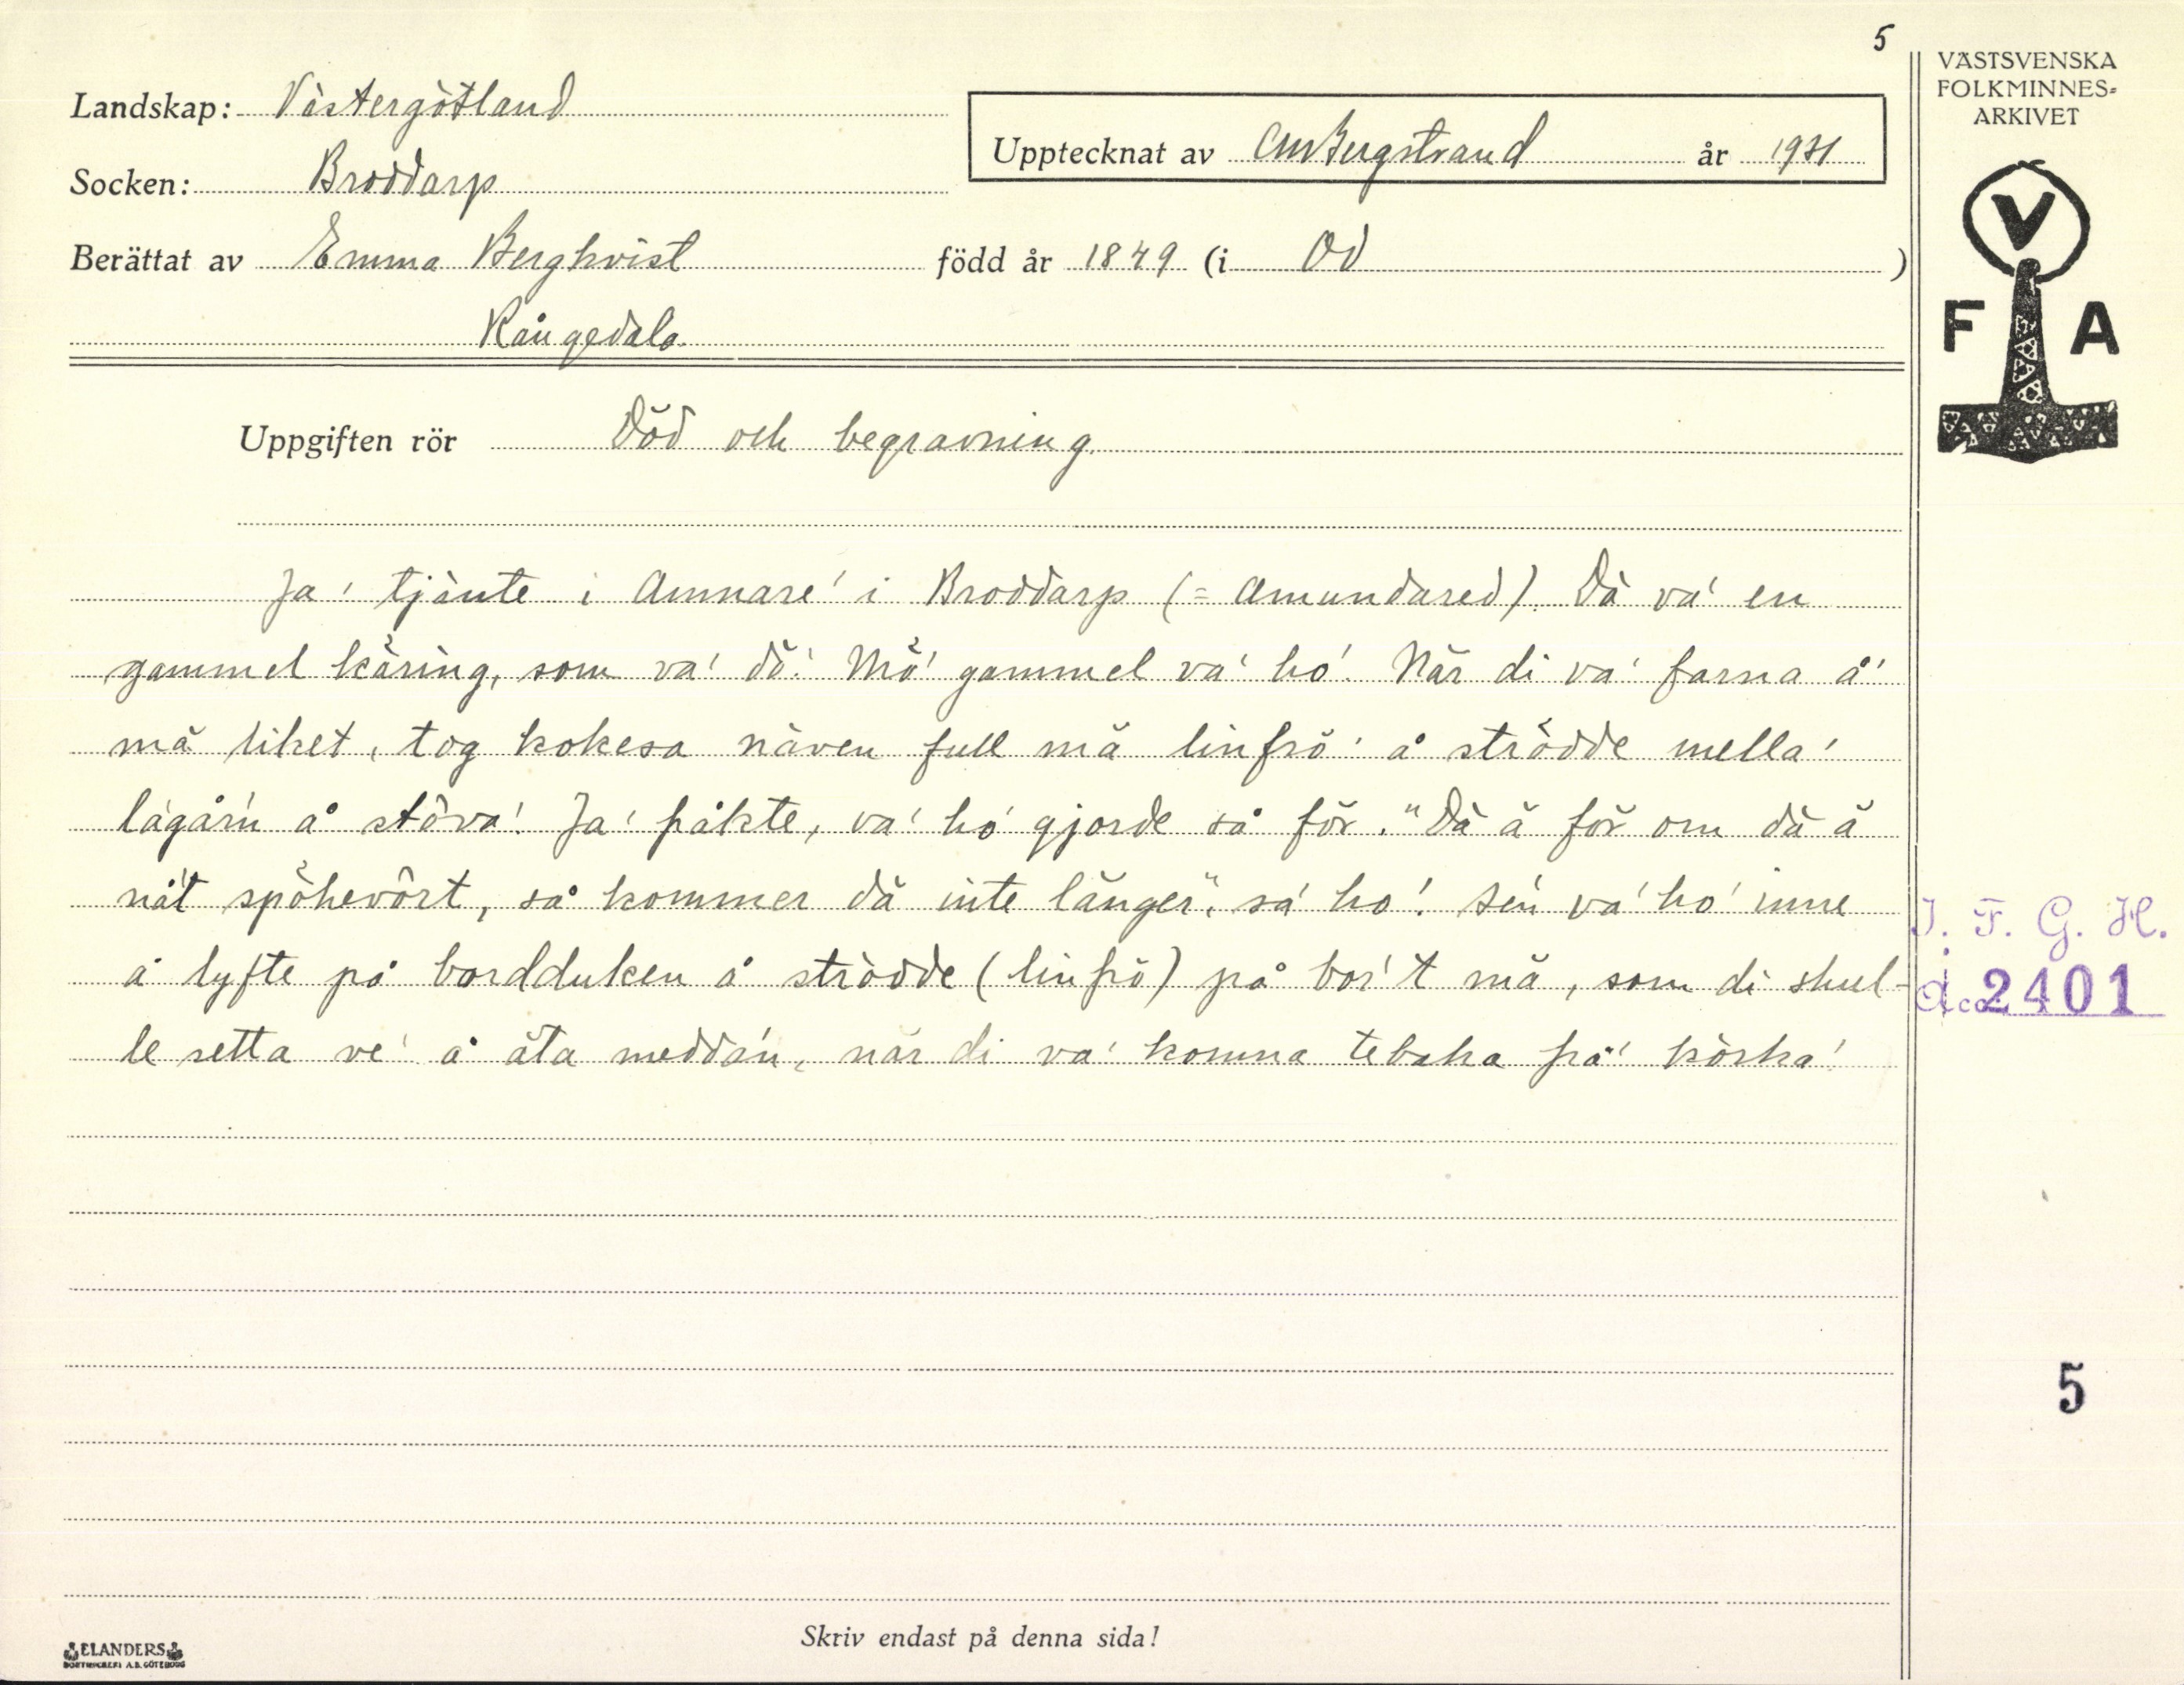 5
VÄSTSVENSKA
FOLKMINNES-
ARKIVET
Landskap: Västergötland
Upptecknat av CMBergstrand år 1931
Socken: Broddarp
Berättat av Emma Bergkvist född år 1849 (i Od)
Rångedala
V
F A
Uppgiften rör Död och begravning.
Ja' tjänte i Amnare' i Broddarp (= Amundared). Dä va' en
gammel käring, som va' dö'. Mö' gammel va' ho'. När di va' farna å'
mä liket, tog kokesa näven full mä linfrö' å strödde mella'
lägår'n å stöva'. Ja' fråkte, va' ho' gjorde så för. "Dä ä för om dä ä
nå't spöhevört, så kommer dä inte länger", sa' ho'. Sen va' ho' inne
å lyfte på bordduken å strödde (linfrö) på bor't mä, som di skul-
le setta ve' å äta meddan, när di va' komna tebaka frå' körka'.
J. F. G. H.
Acc. 2401
5
Skriv endast på denna sida!
ELANDERS
BOKTRYCKERI A.B. GÖTEBORG